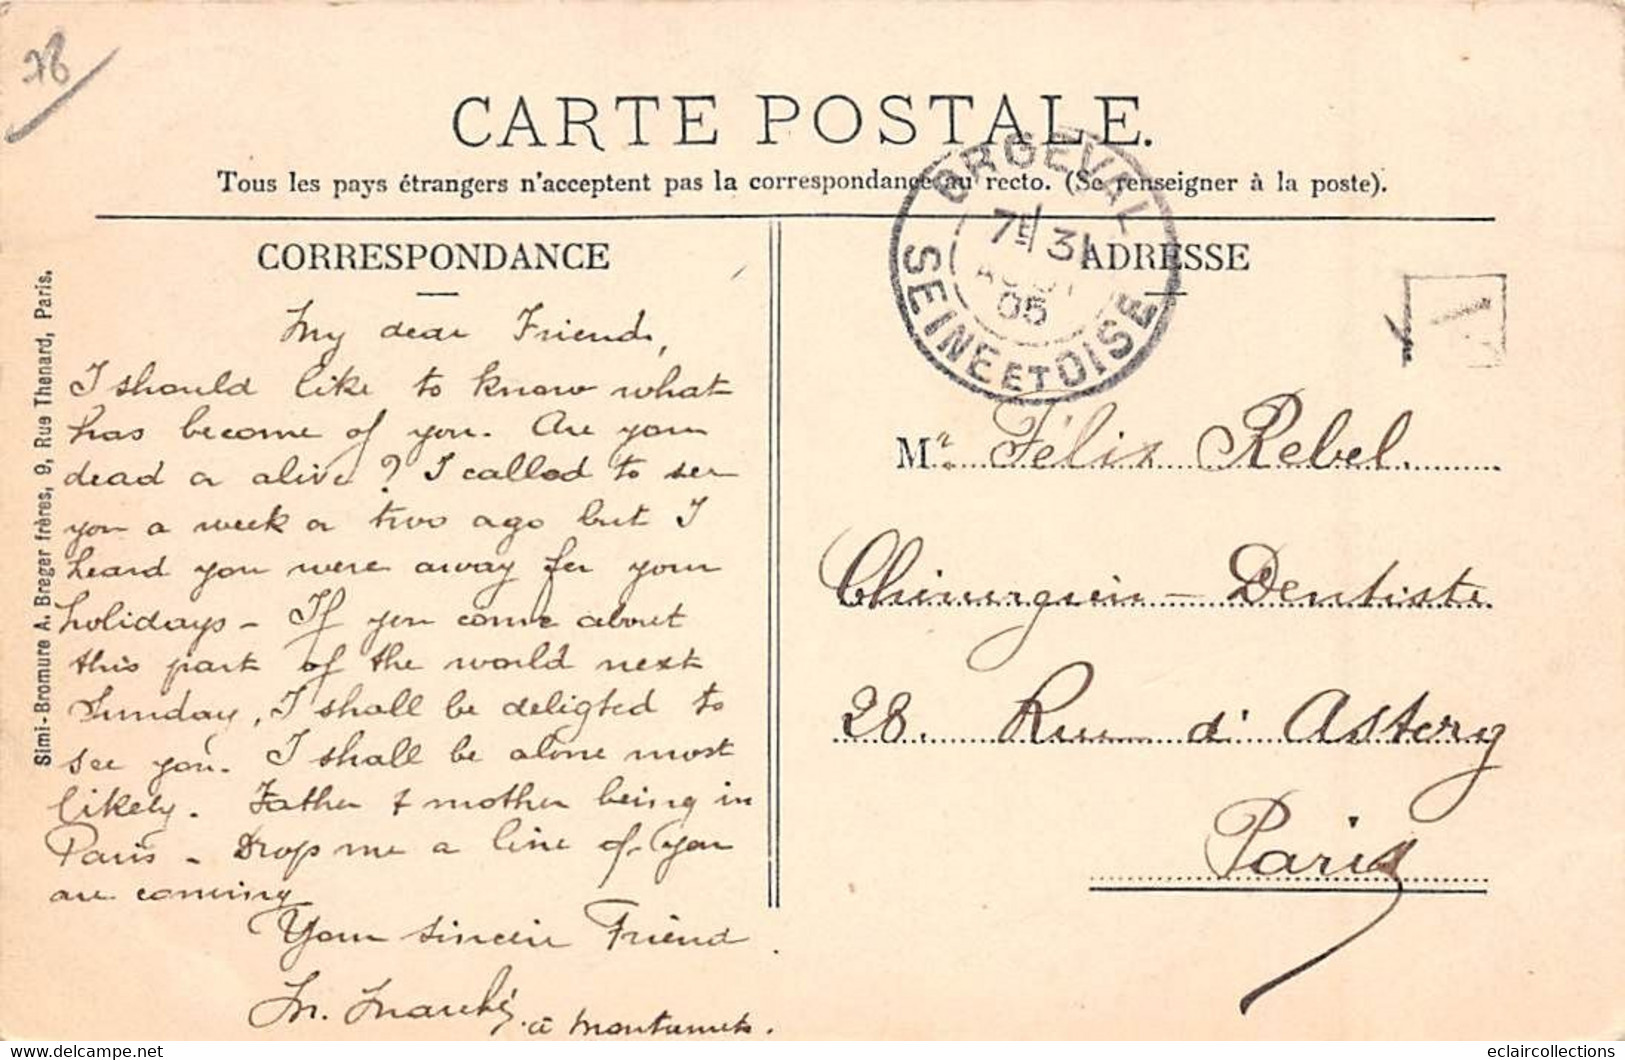 78
CARTE POSTALE.
Tous les pays étrangers n'acceptent pas la correspondance au recto. (Se renseigner à la poste).
ORGEVAL
7E/ 31
AOUT
05
SEINE ET OISE
CORRESPONDANCE
My dear Friend,
I should like to know what
has become of you. Are you
dead or alive? I called to see
you a week or two ago but I
heard you were away for your
holidays - If you come about
this part of the world next
Sunday, I shall be deligted to
see you. I shall be alone most
likely. Father & mother being in
Paris - Drop me a line if you
are coming
Your sincere Friend
M.
à
Simi-Bromure A. Breger frères, 9, Rue Thenard, Paris.
ADRESSE
Mr. Félix Rebel.
Chirurgien - Dentiste
28. Rue d' Astorg
Paris
eclaircollections @ https://www.delcampe.net